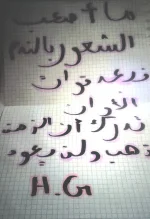 ما أصعب
الشعور بالندم
فوات
الأوان
ندرك أن الزمن
ذهب ولن يعود
H.G